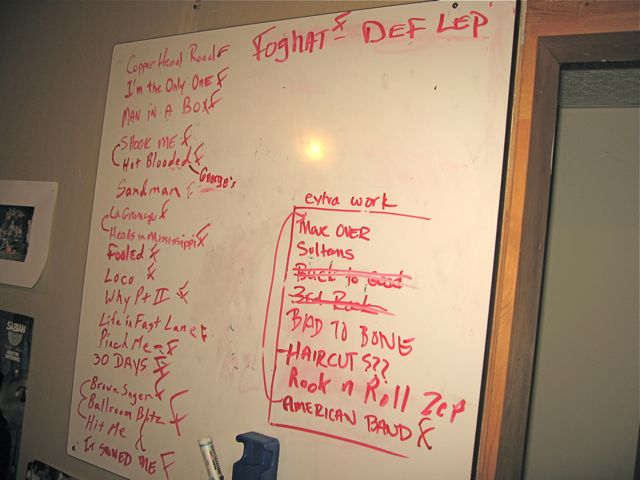 FOGHAT DEF LEP
Copper Head Road F
I'm the Only One F
MAN IN A BOX F
SHOOK ME F
Hot Blooded F
George's
Sandman F
La Grange F
Heads in Mississippi F
Fooled F
Loco F
Why Pt II F
Life in Fast Lane F
Pinch Me F
30 DAYS F
Brown Suger F
Ballroom Blitz F
Hit Me F
extra work
Move OVER
Sultans
Back to Good
3rd Rock
BAD TO BONE
HAIRCUT S??
Rock n Roll Zep
AMERICAN BAND F
SABIAN